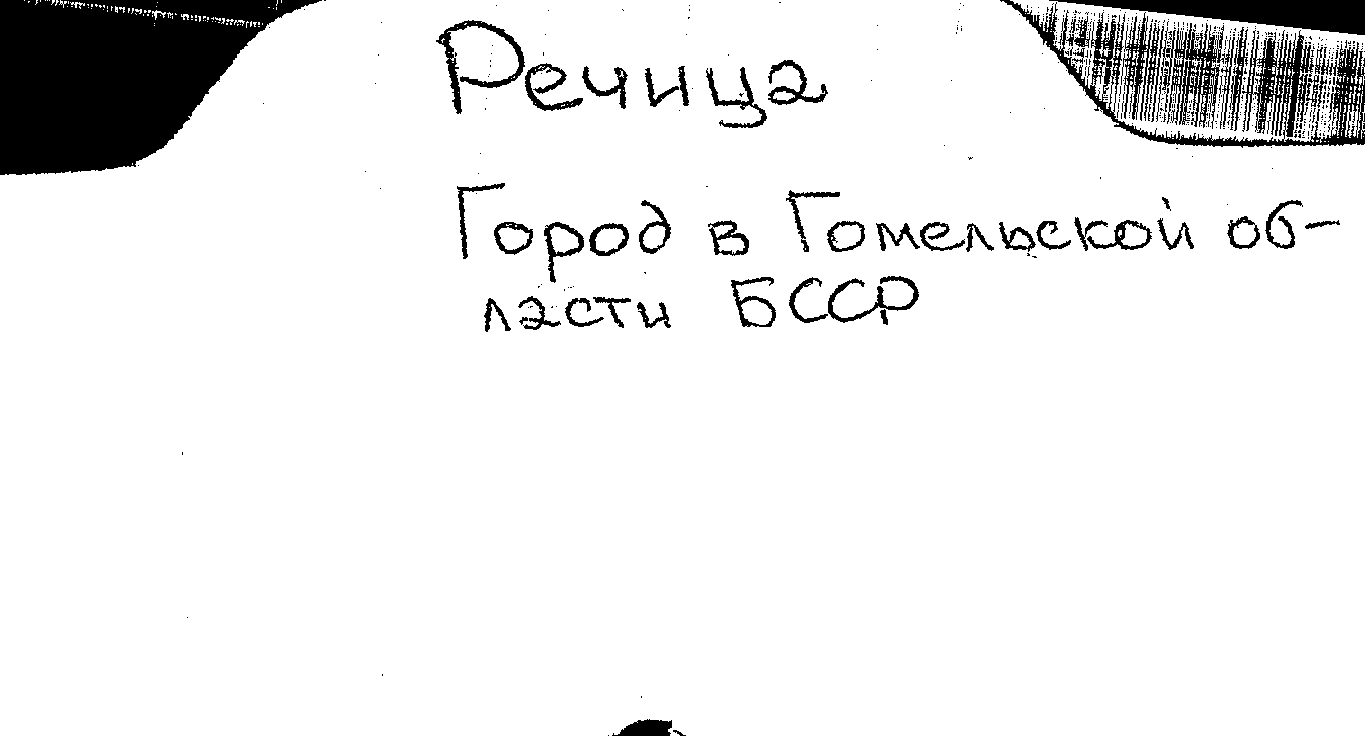 Речица
Город в Гомельской об-
ласти БССР